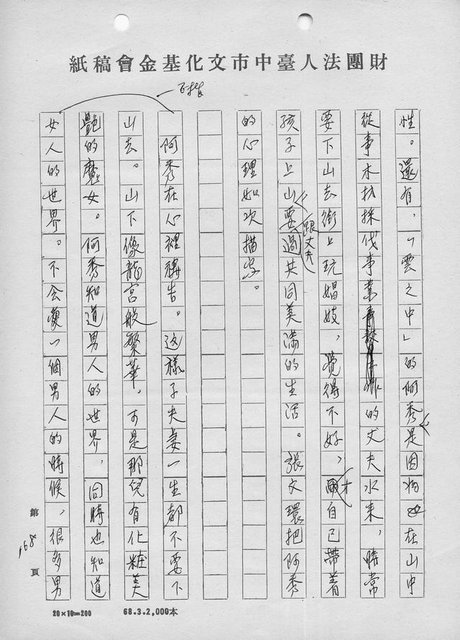 財團法人臺中市文化基金會稿紙
性。還有，「雲之中」的阿秀是因為在山中
從事木材採伐事業的丈夫水來，時常
要下山去街上玩娼妓，覺得不好，才自己帶着
孩子上山要跟丈夫過共同美滿的生活。張文環把阿秀
的心理如次描寫。
阿秀在心裡禱告。這樣子夫妻一生都不要下
山去。山下像龍宮般繁華，可是那兒有化粧美
艷的魔女。阿秀知道男人的世界，同時也知道
女人的世界。不會變一個男人的時候，很多男
第168頁
20×10=200
68.3.2,000本